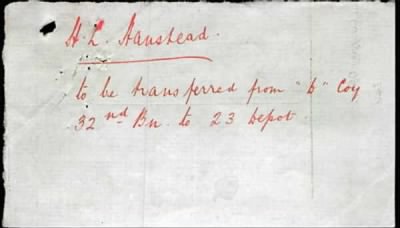 H. L. Hanstead.
to be transferred from "D" Coy
32nd Bn. to 23 Depot.